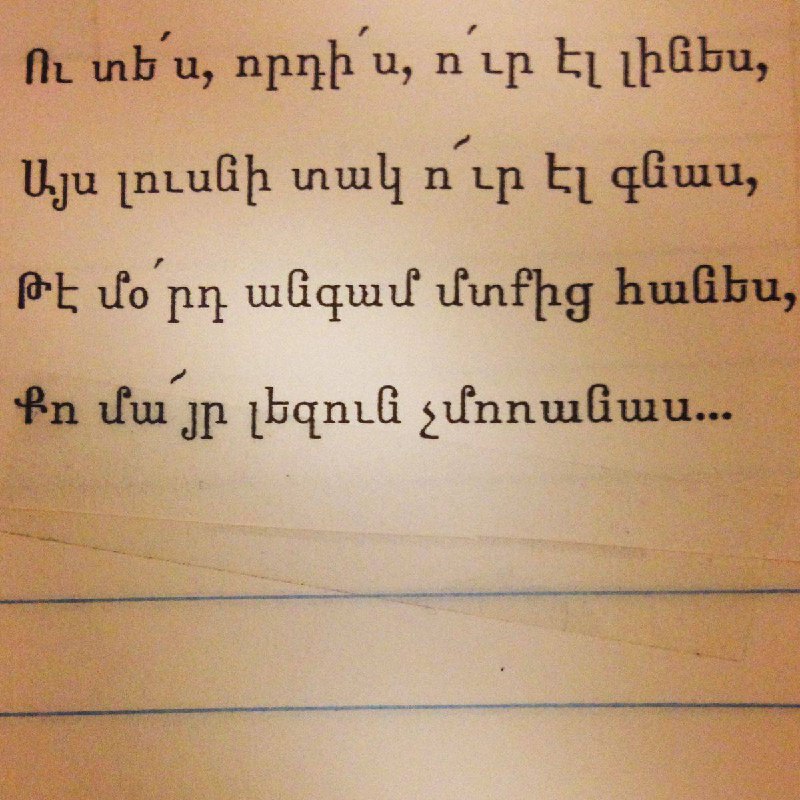 Ու տե՛ս, որդի՛ս, ո՛ւր էլ լինես,
Այս լուսնի տակ ո՛ւր էլ գնաս,
Թէ մօ՛րդ անգամ մտքից հանես,
Քո մա՛յր լեզուն չմոռանաս...